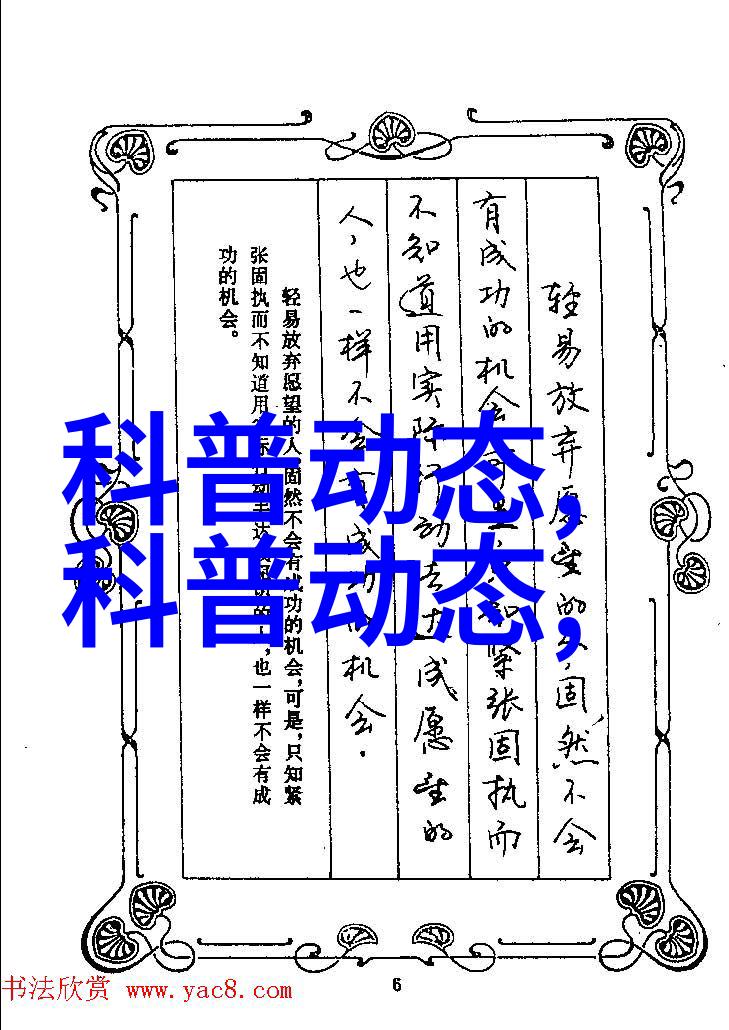 轻易放弃愿望的人,固然不会
有成功的机会可是只知紧张固执而
不知道用实际行动去达成愿望的
人,也一样不会有成功的机会.
轻易放弃愿望的人,固然不会有成功的机会,可是,只知紧
张固执而不知道用际动去达,也一样不会有成
功的机会。
科普动态,
科普动态,
6
书法欣赏 www.yac8.com